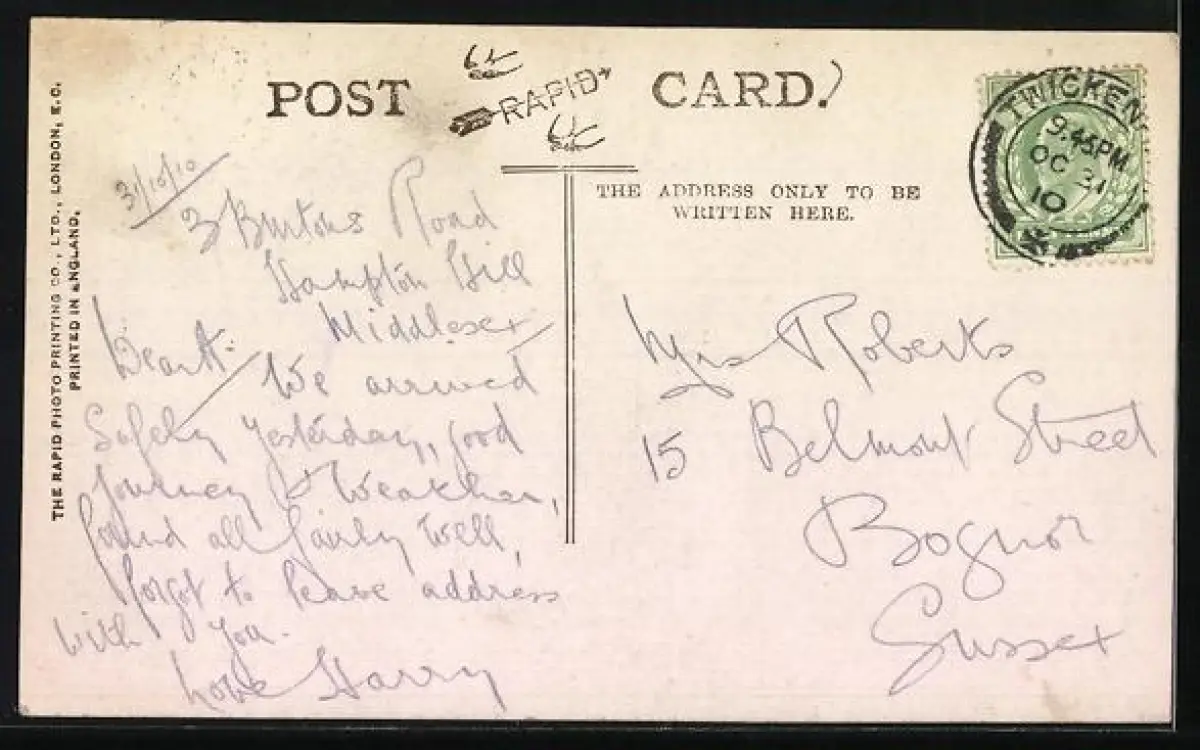 POST RAPID CARD.
THE ADDRESS ONLY TO BE
WRITTEN HERE.
TWICKEN
9.45PM
OC 31
10
THE RAPID PHOTO PRINTING CO., LTD., LONDON, E.C.
PRINTED IN ENGLAND.
31/10/10
3 Burtons Road
Hampton Hill
Middlesex
Dear A. We arrived
Safely yesterday, good
journey & Weather,
found all fairly well,
forgot to leave address
with you.
Love Harry
Mrs Roberts
15 Belmont Street
Bognor
Sussex